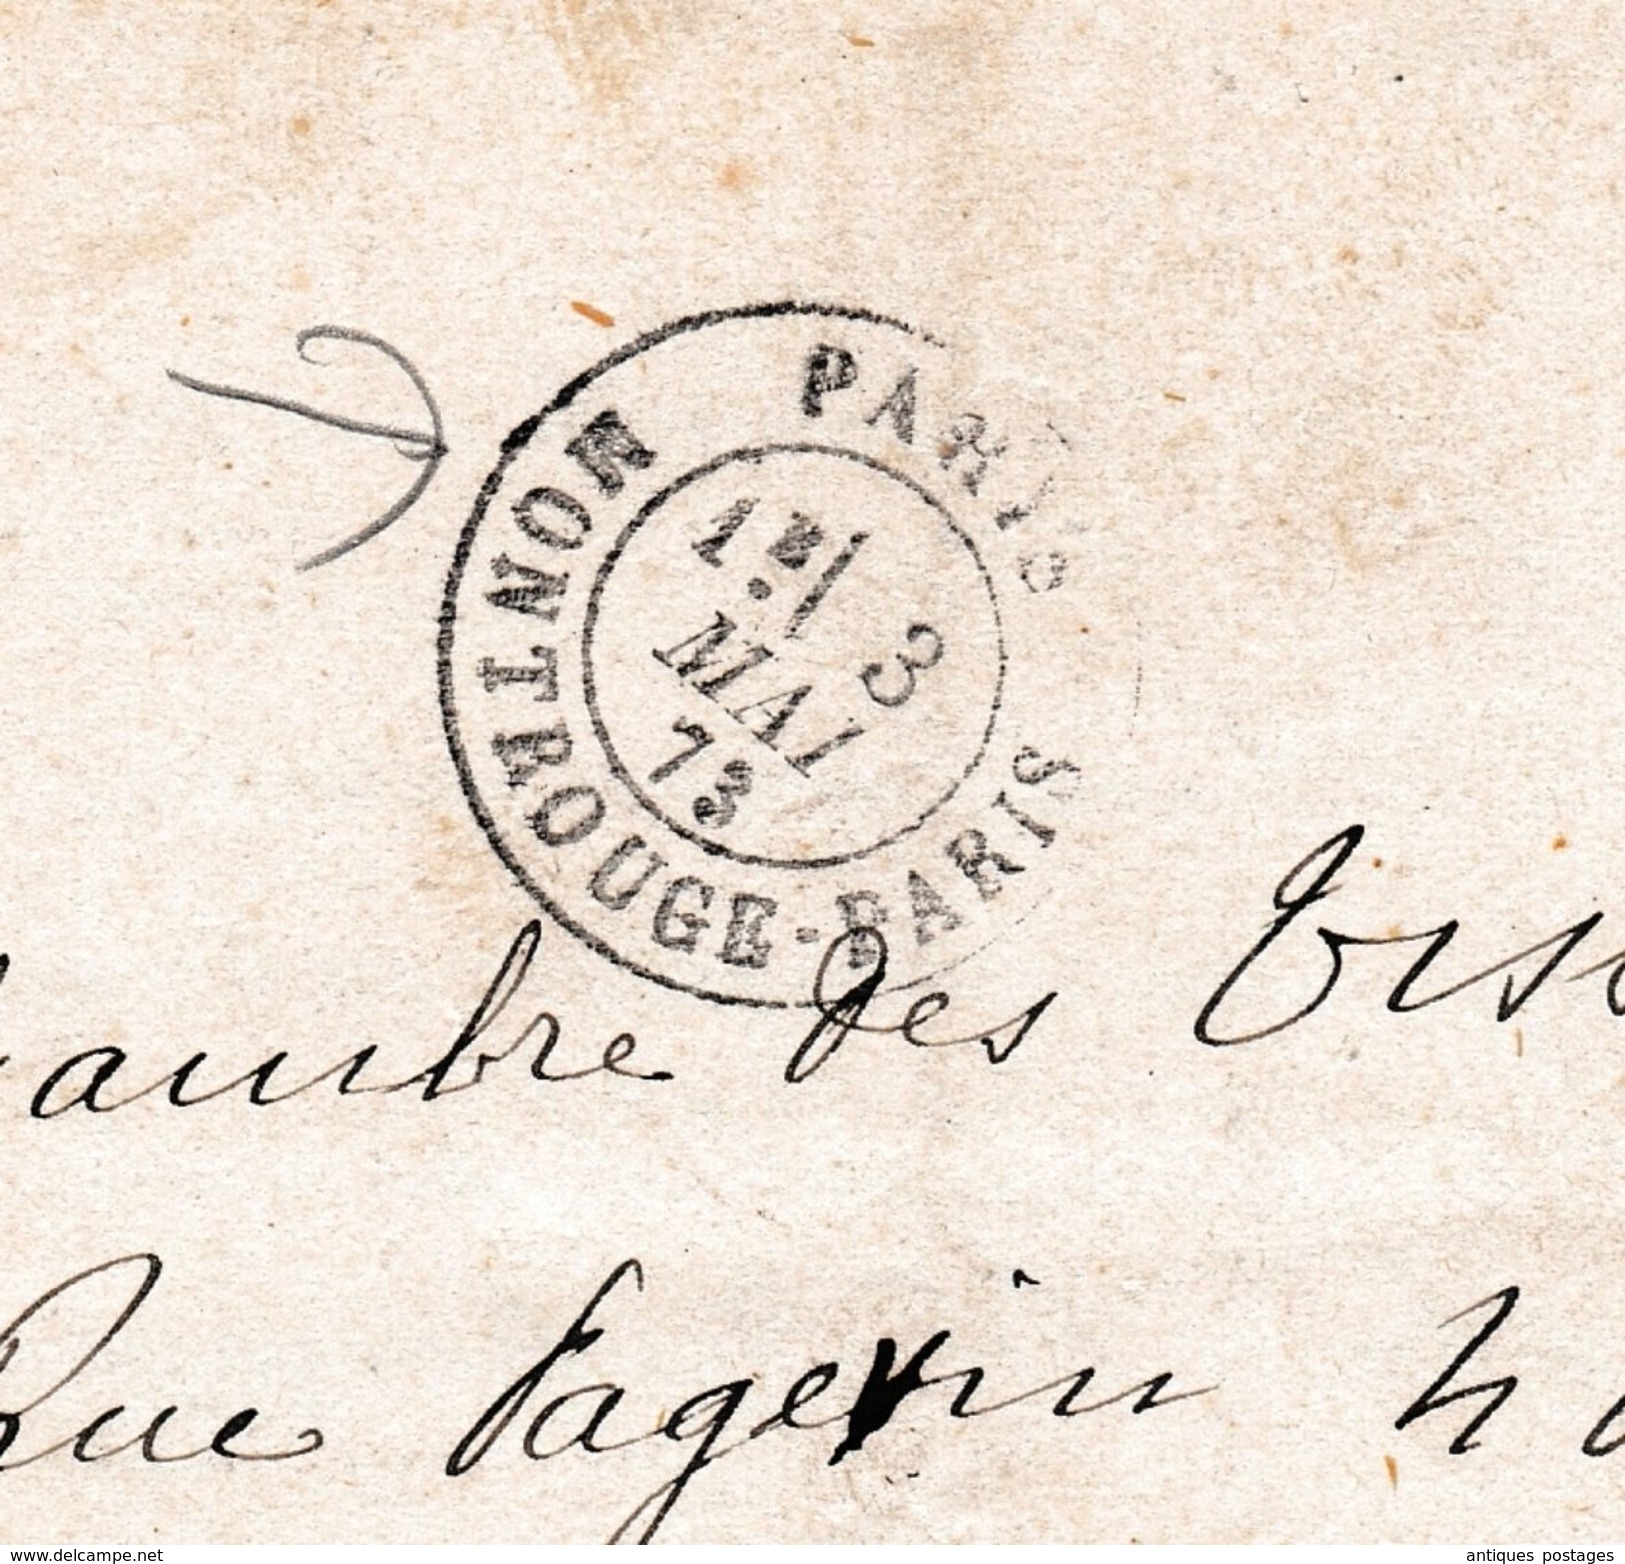 PARIS
MONTROUGE-PARIS
1.E/ 3
MAI
73
ambre des
Rue
www.delcampe.net
antiques postages